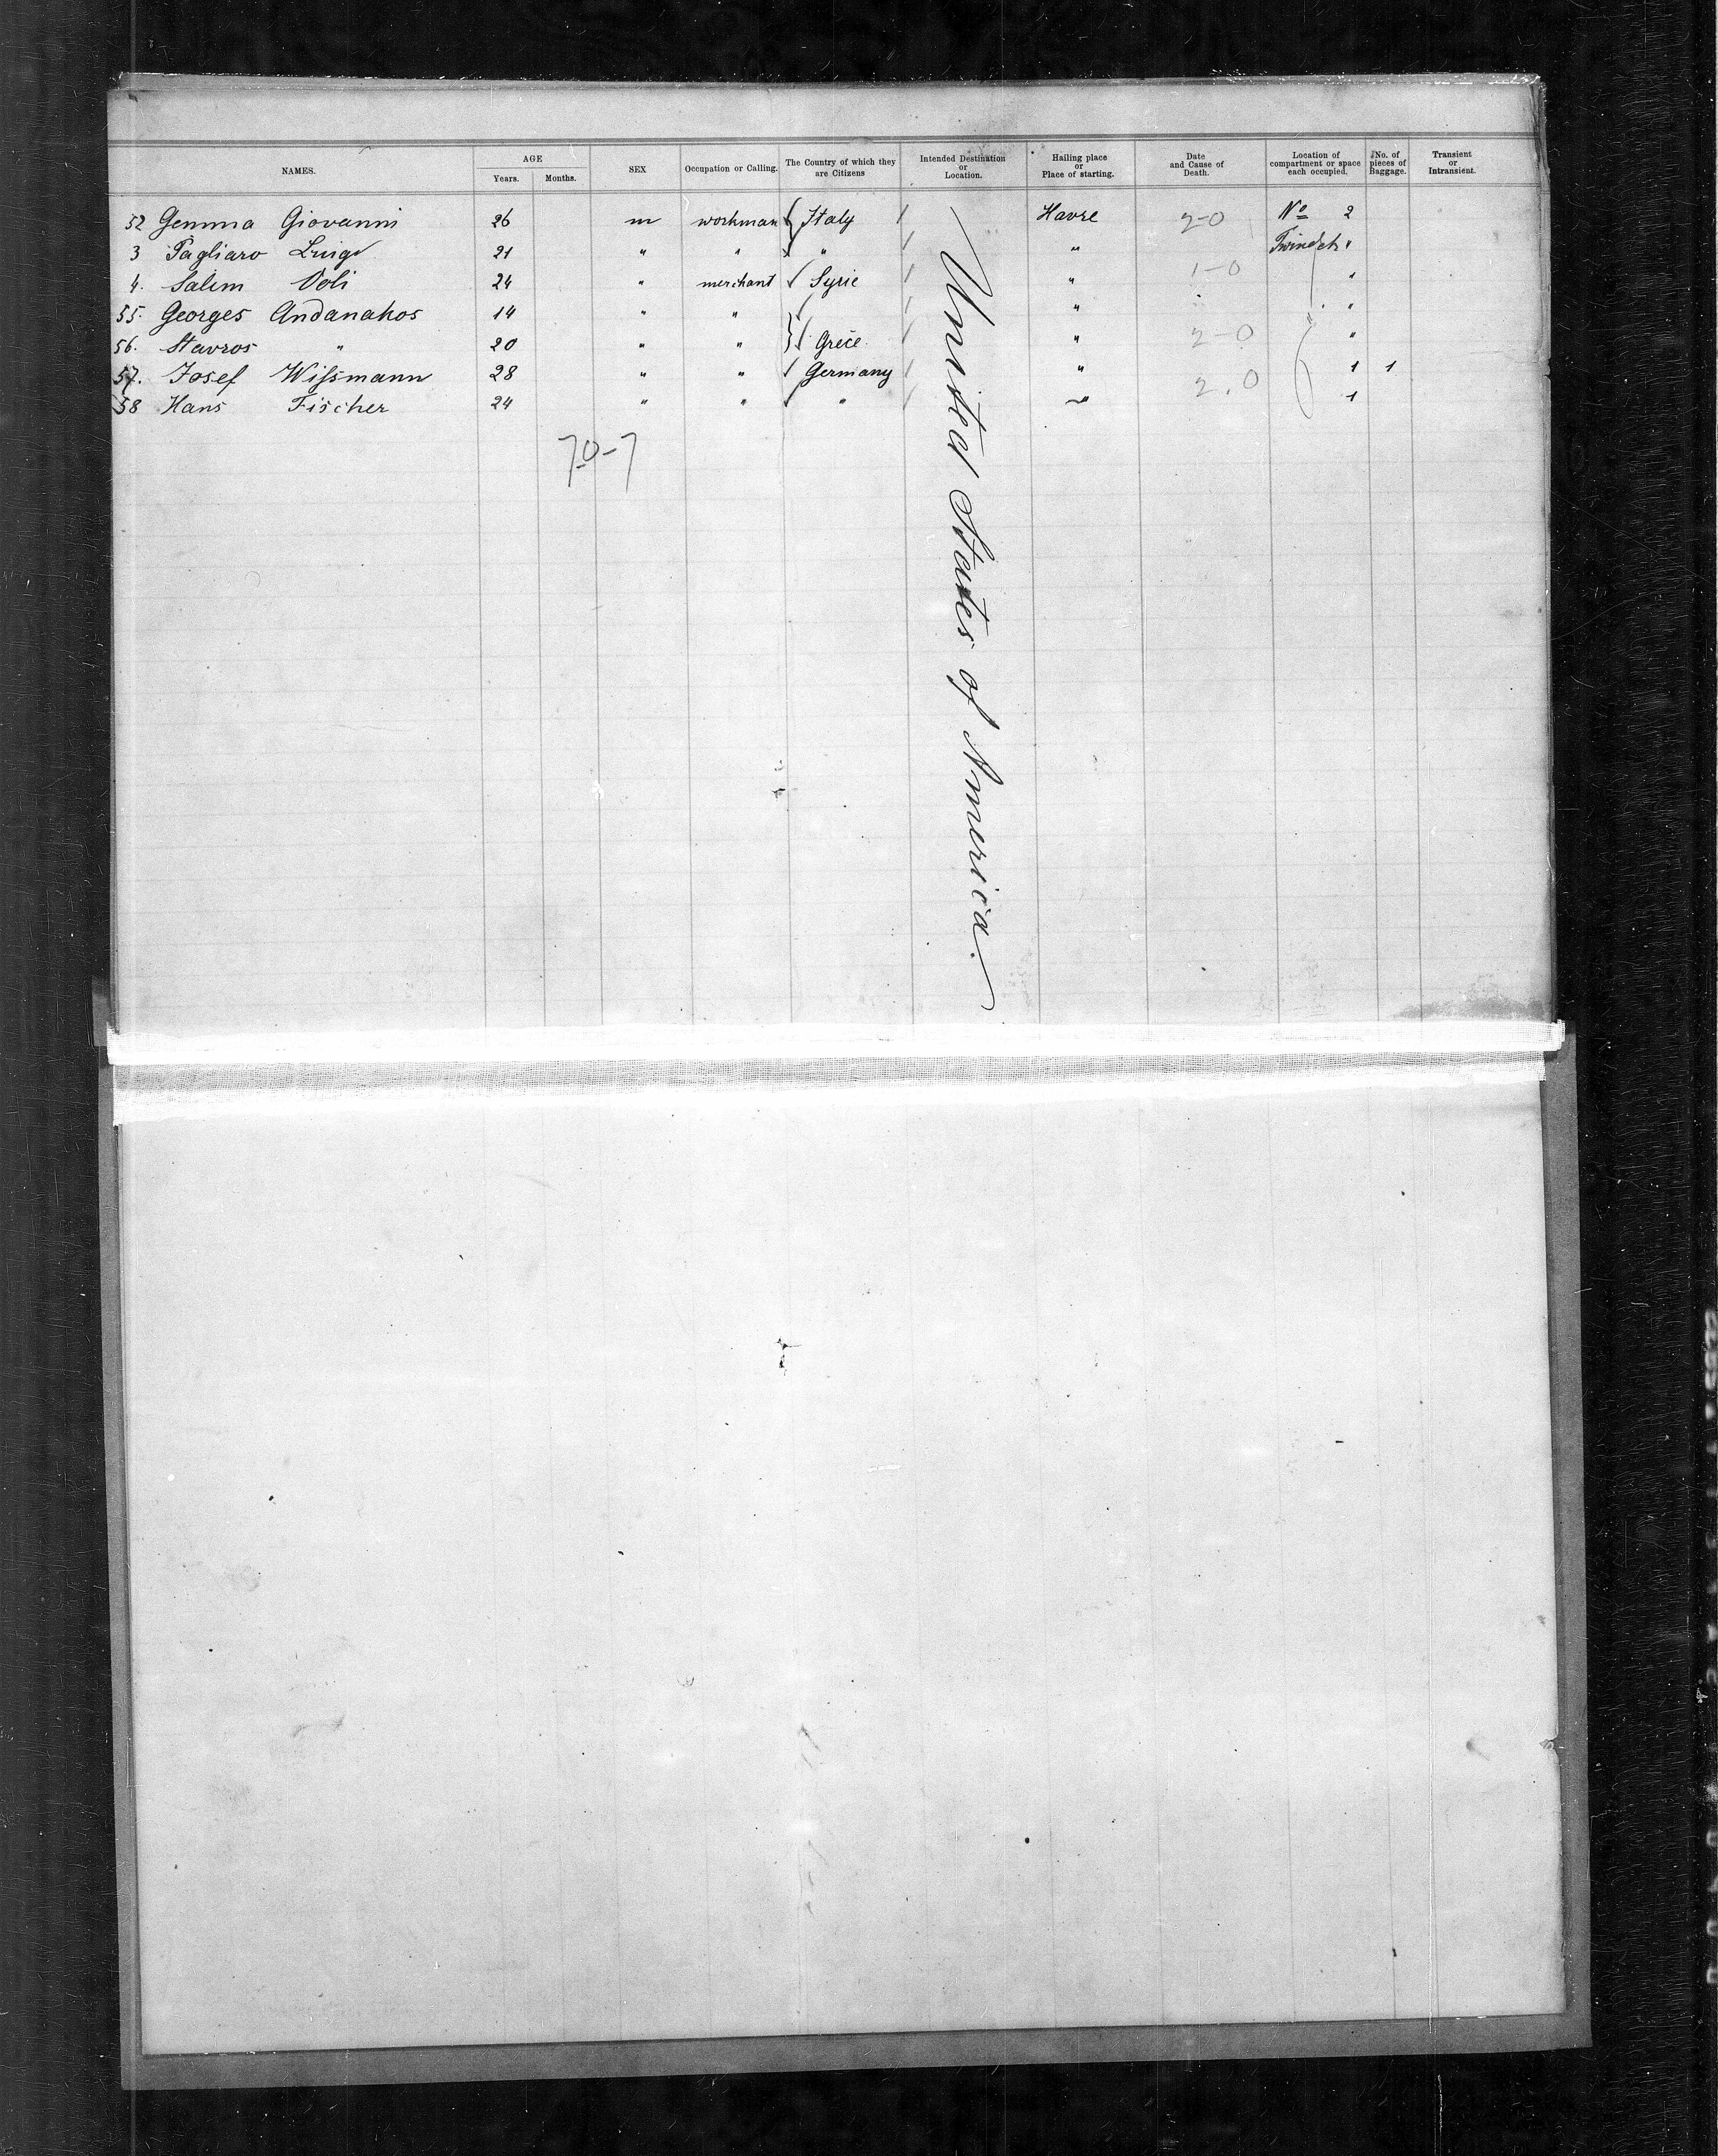 NAMES. AGE Years. Months. SEX Occupation or Calling. The Country of which they are Citizens Intended Destination or Location. Hailing place or Place of starting. Date and Cause of Death. Location of compartment or space each occupied. No. of pieces of Baggage. Transient or Intransient.
52 Gemma Giovanni 26 m workman Italy Havre 2-0 No 2
3 Pagliaro Luigi 21 " " " " Twindek "
4. Salim 24 " merchant Syrie " 1-0 "
55. Georges Andanakos 14 " " " "
56. Stavros " 20 " " Grèce " 2-0 "
57. Josef Wissmann 28 " " Germany " 1 1
58 Hans Fischer 24 " " " " 2.0 1
70-7
United States of America.